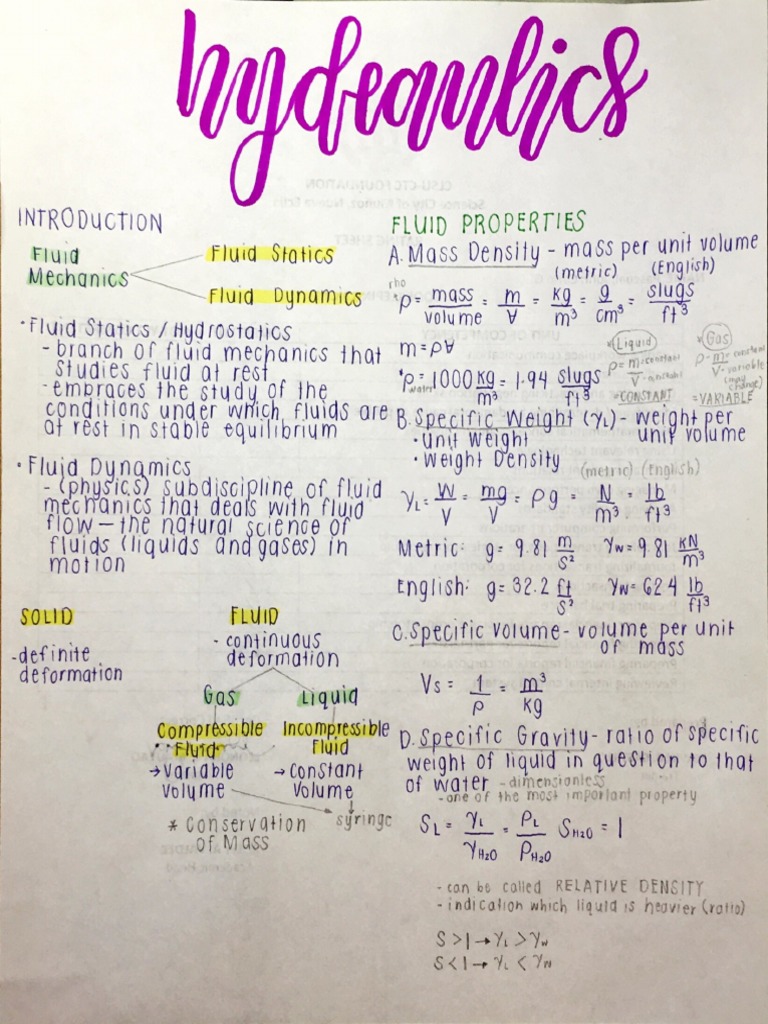 hydraulics
INTRODUCTION
Fluid
Mechanics
Fluid Statics
Fluid Dynamics
• Fluid Statics / Hydrostatics
- branch of fluid mechanics that
studies fluid at rest
- embraces the study of the
conditions under which fluids are
at rest in stable equilibrium
• Fluid Dynamics
- (physics) subdiscipline of fluid
mechanics that deals with fluid
flow — the natural science of
fluids (liquids and gases) in
motion
SOLID
- definite
deformation
FLUID
- continuous
deformation
Gas
Liquid
Compressible
Fluid
→ variable
volume
Incompressible
Fluid
→ constant
volume
syringe
* Conservation
of Mass
FLUID PROPERTIES
A. Mass Density - mass per unit volume
(metric) (English)
rho
*ρ = mass/volume = m/V = kg/m³ = g/cm³ = slugs/ft³
m = ρV
*ρwater = 1000 kg/m³ = 1.94 slugs/ft³
*Liquid
ρ = m = constant / V = constant
= CONSTANT
*Gas
ρ = m = constant / V = variable
(may change)
= VARIABLE
B. Specific Weight (γL) - weight per
unit volume
• unit weight
• Weight Density
(metric) (English)
γL = W/V = mg/V = ρg = N/m³ = lb/ft³
Metric: g = 9.81 m/s² γw = 9.81 kN/m³
English: g = 32.2 ft/s² γw = 62.4 lb/ft³
C. Specific Volume - volume per unit
of mass
Vs = 1/ρ = m³/kg
D. Specific Gravity - ratio of specific
weight of liquid in question to that
of water - dimensionless
- one of the most important property
SL = γL/γH2O = ρL/ρH2O SH2O = 1
- can be called RELATIVE DENSITY
- indication which liquid is heavier (ratio)
S > 1 → γL > γw
S < 1 → γL < γw